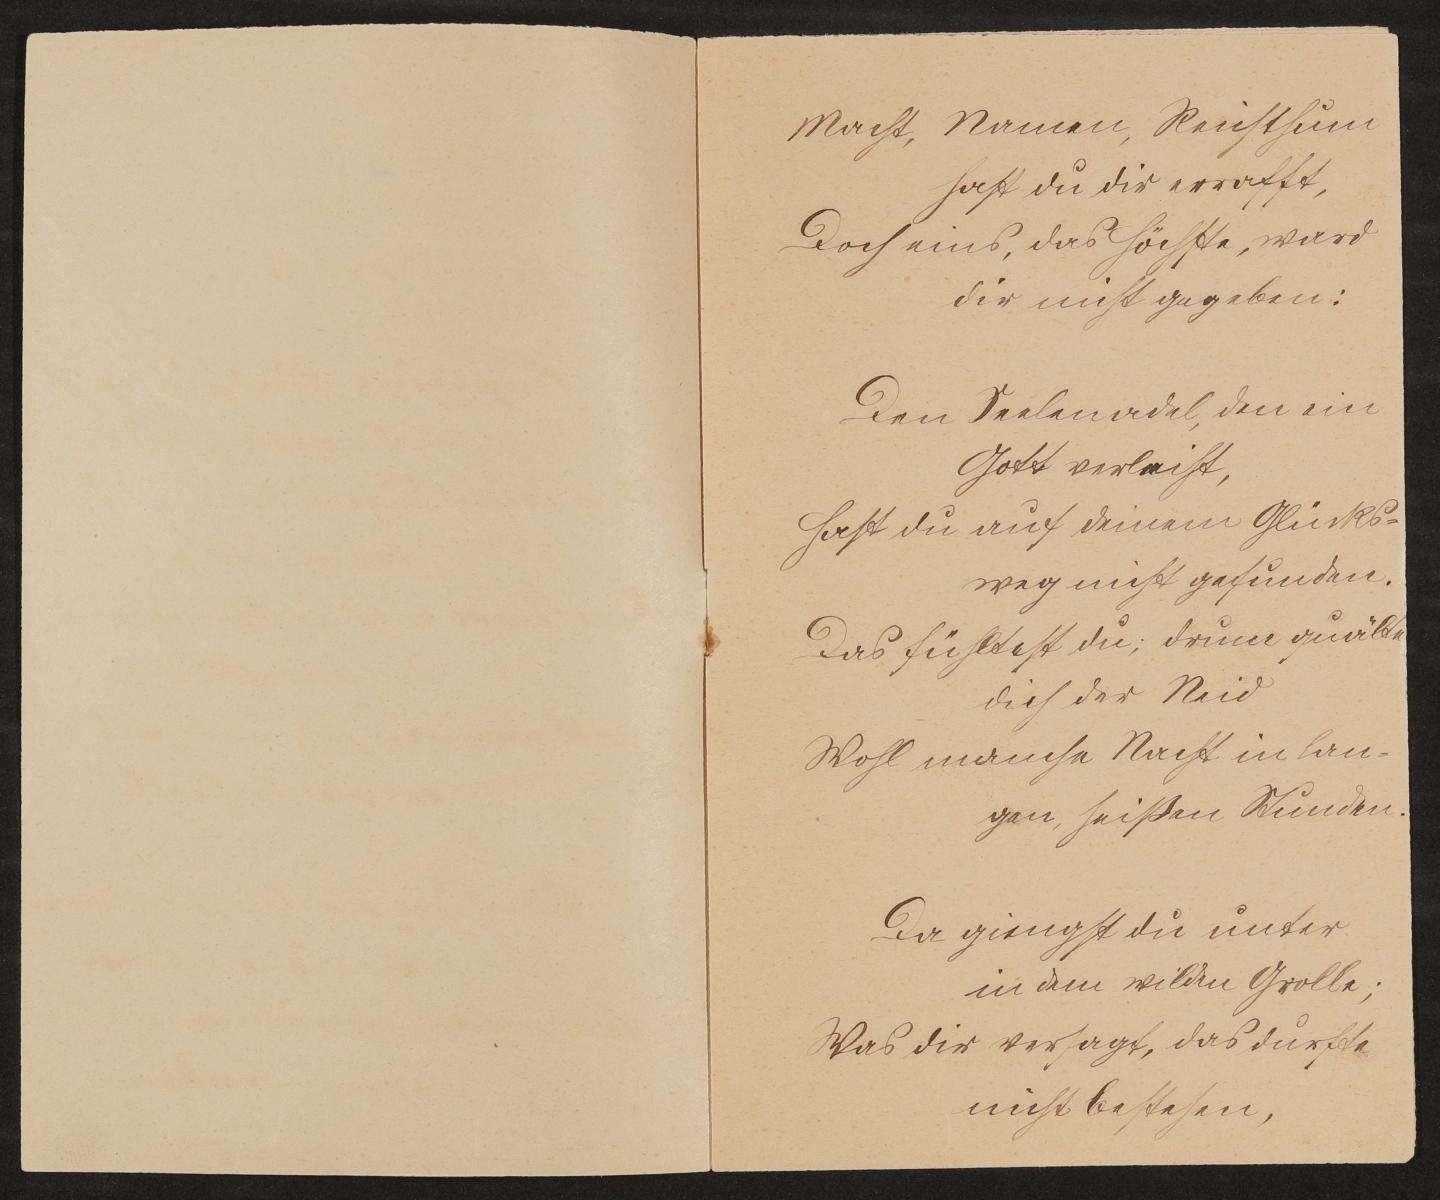 Macht, Namen, Reichthum
hast du dir errafft,
Doch eins, das höchste, ward
dir nicht gegeben:
Den Seelenadel, den ein
Gott verleiht,
Hast du auf deinem Glücks-
weg nicht gefunden.
Das fühltest du; drum quälte
dich der Neid
Wohl manche Nacht in lan-
gen, heißen Stunden.
Da giengst du unter
in dem wilden Grolle;
Was dir versagt, das durfte
nicht bestehen,